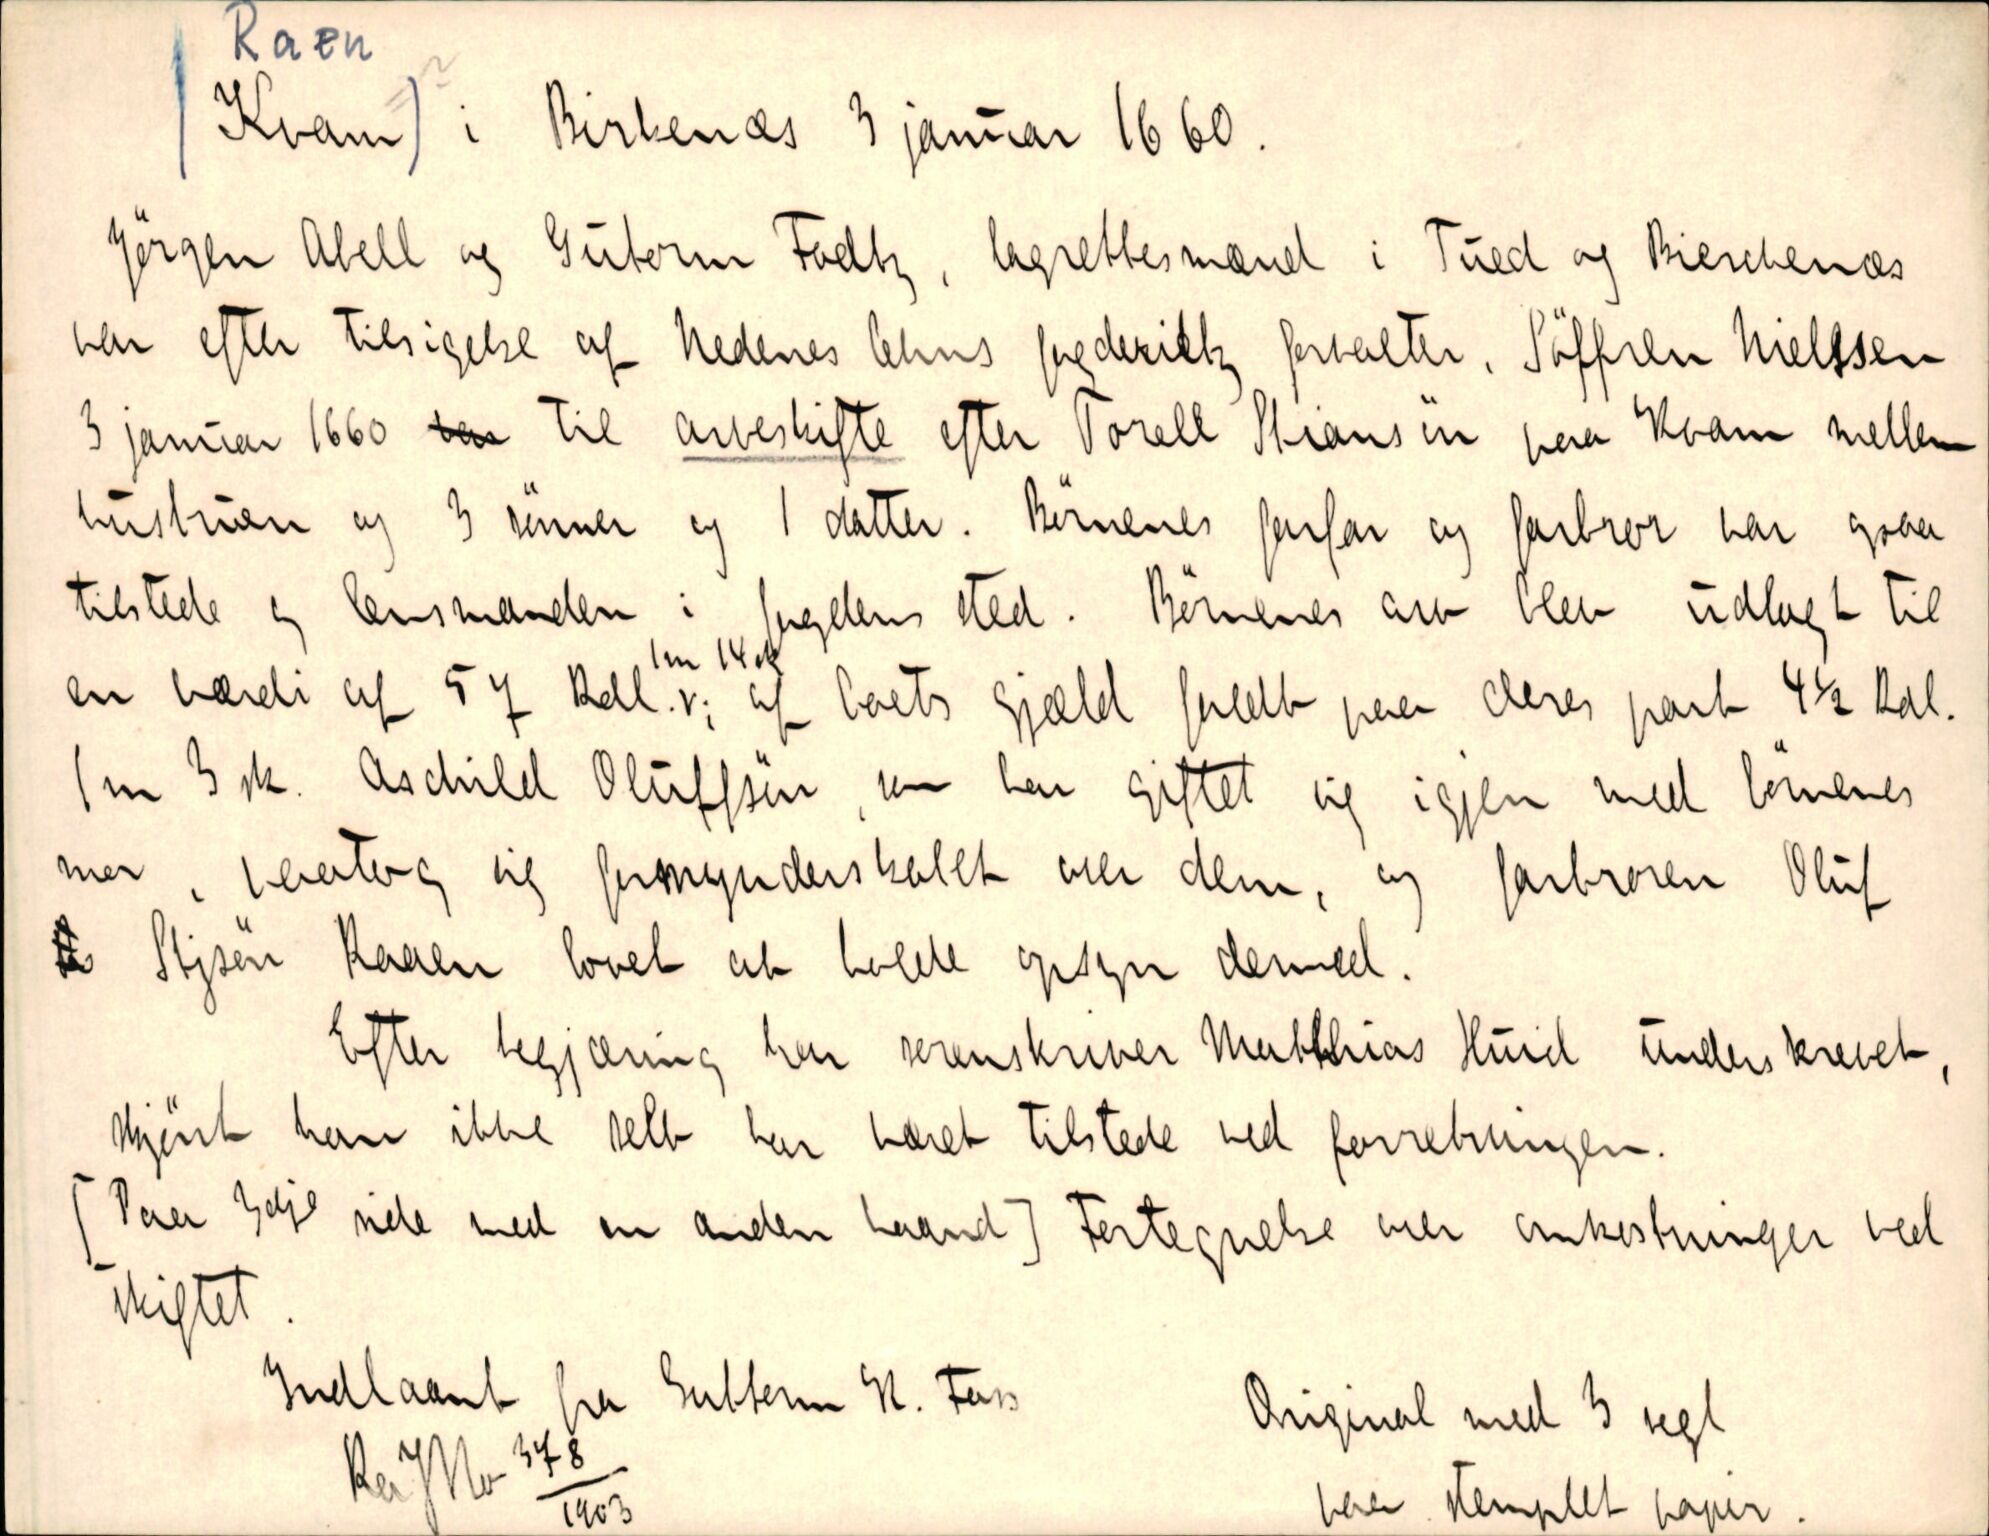 Raen
(Kvam) i Birkenæs 3 januar 1660.
Jörgen Abell og Gutorm Fodtz, lagrettesmænd i Tued og Bierchenæs
var efter tilsigelse af Nedenes lehns fogderietz forvalter, Söffren Nielssen
3 januar 1660 til arveskifte efter Torell Stiansön paa Kvam mellem
hustruen og 3 sönner og 1 datter. Börnenes farfar og farbror var ogsaa
tilstede og lensmanden i fogdens sted. Börnenes arv blev udlagt til
en værdi af 57 Rdl. 1 m 14 sk af boets gjæld faldt paa deres part 4½ Rdl.
1 m 3 sk. Aschild Oluffsön, som har giftet sig igjen med börnenes
mor, paatog sig formynderskabet over dem, og farbroren Oluf
Stjsön Raaen lovet at holde opsyn dermed.
Efter begjæring har sorenskriver Matthias Huid underskrevet,
skjönt han ikke selv har været tilstede ved forretningen.
[Paa 3dje side med en anden haand] Fortegnelse over omkostninger ved
skiftet.
Indlaant fra Guttorm K. Foss
Ra JNo 378/1903
Original med 3 segl
paa stemplet papir.